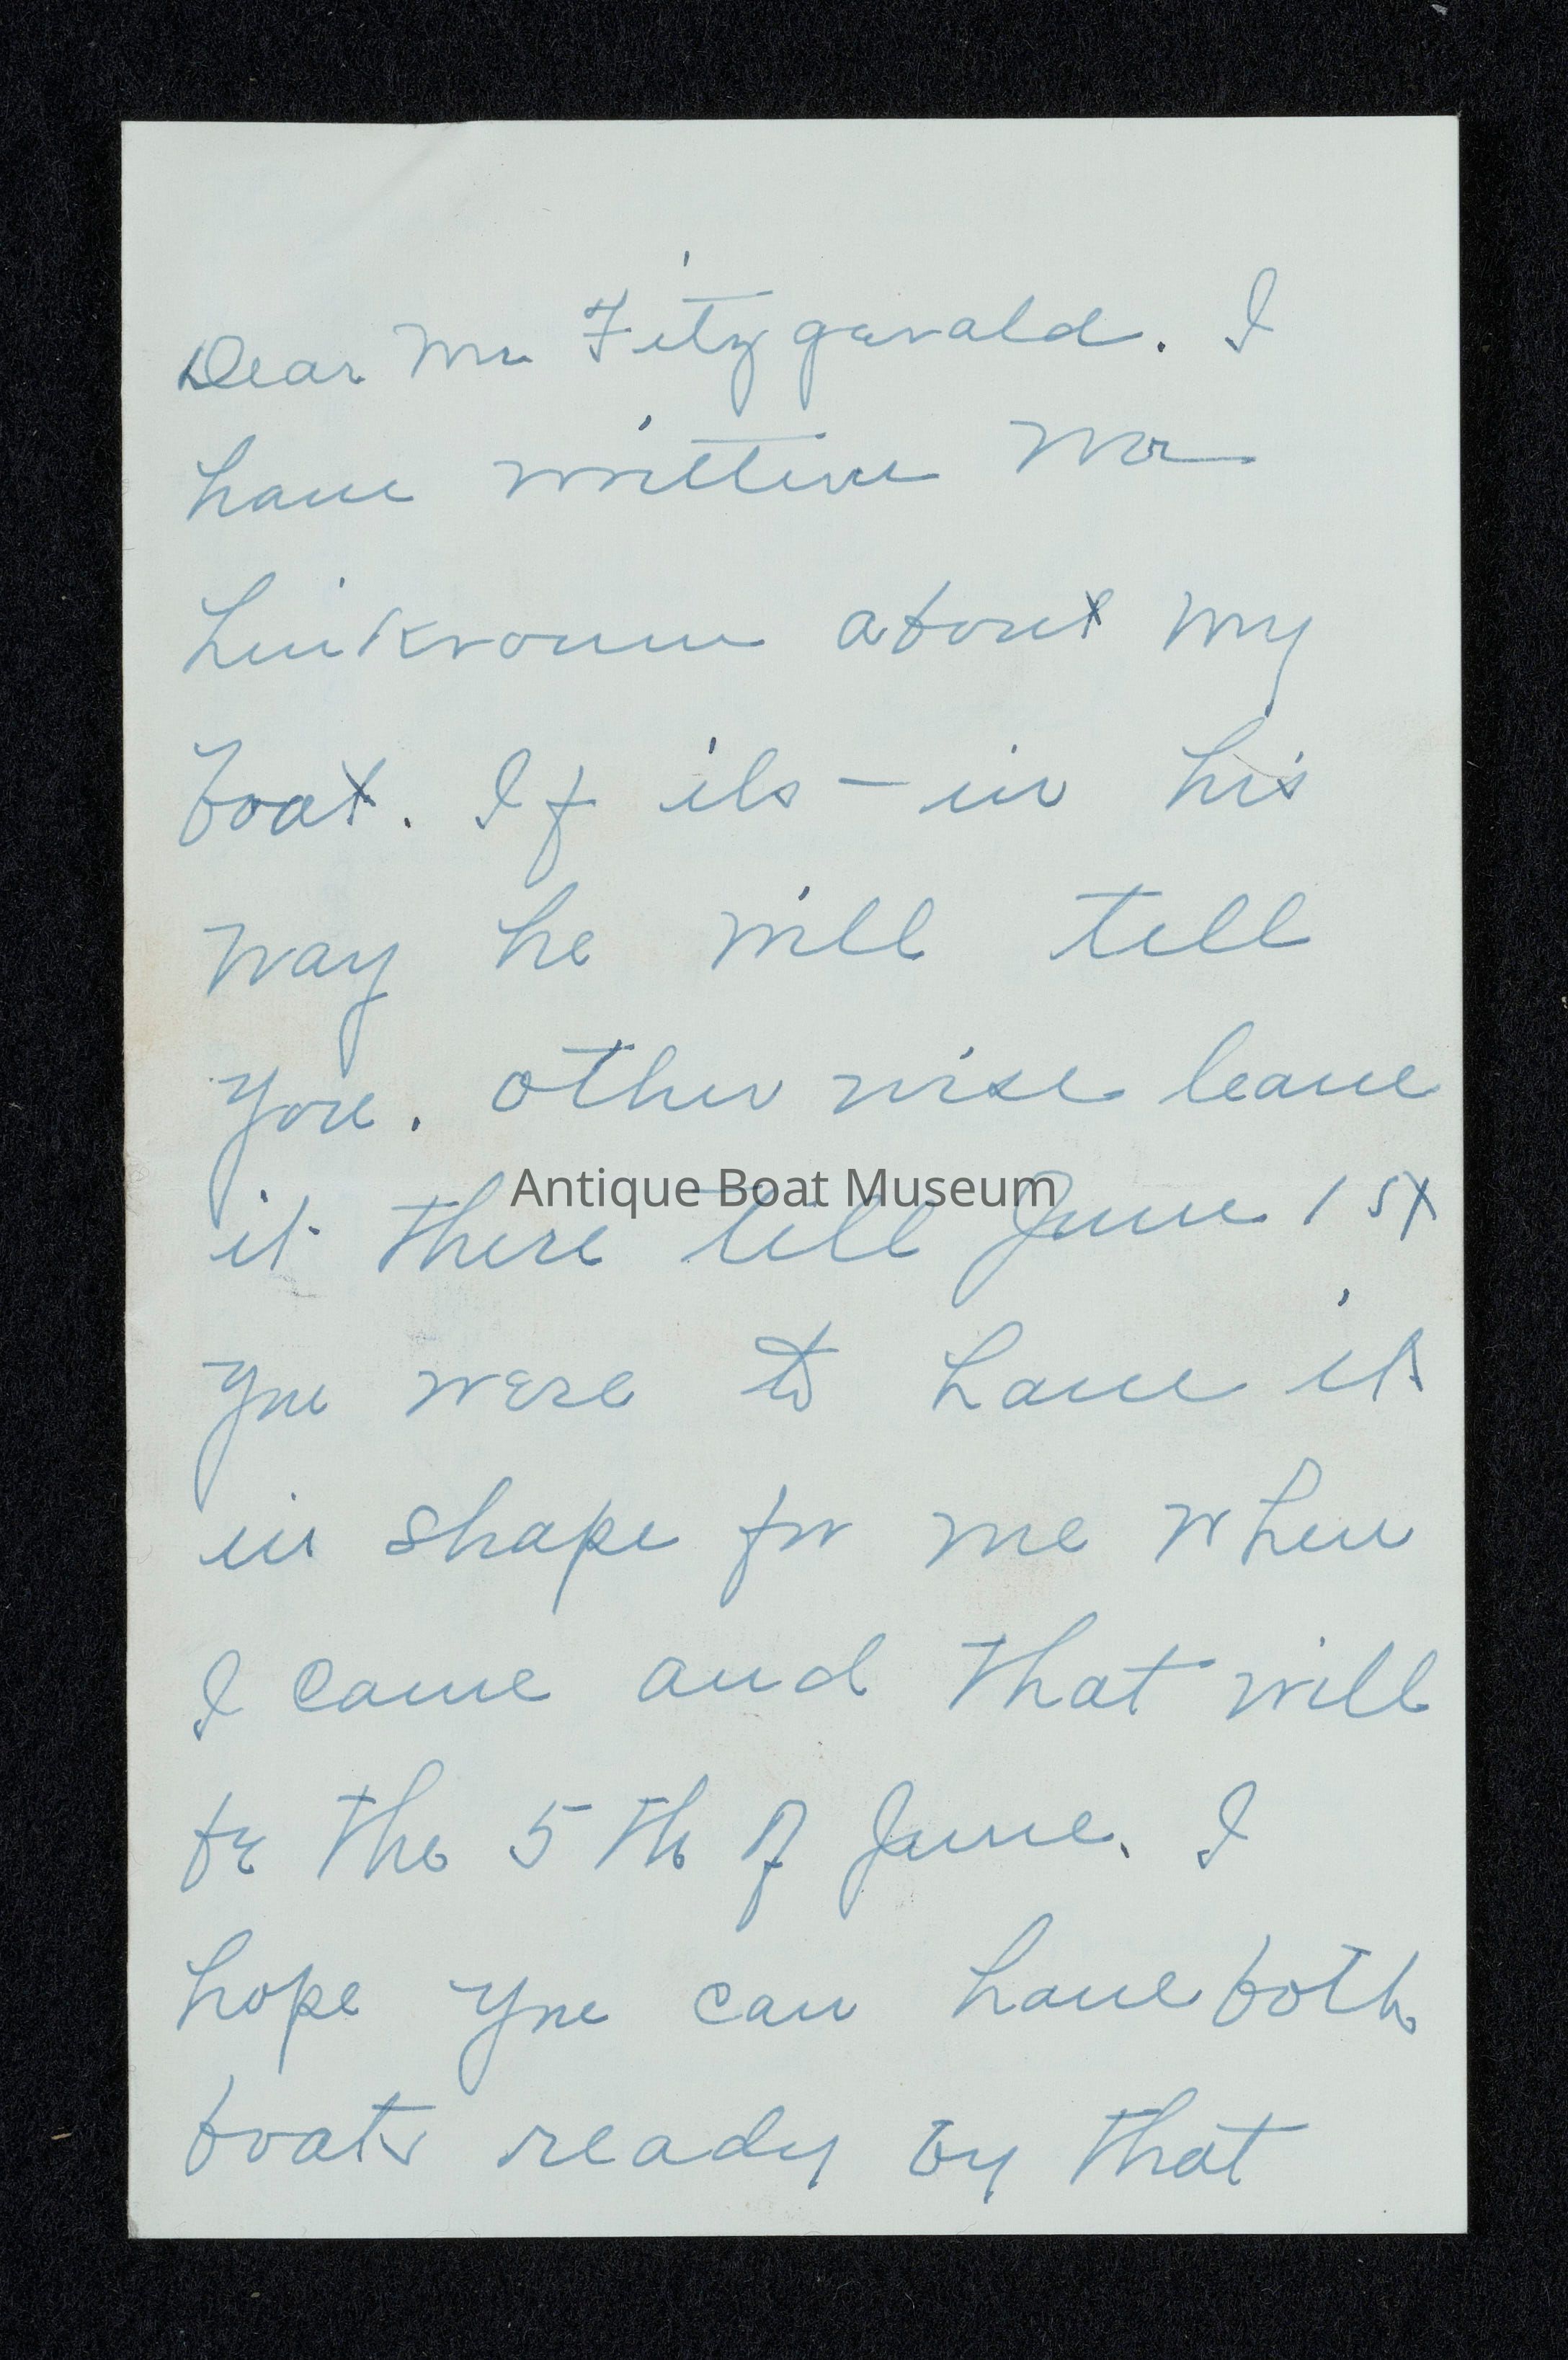 Dear Mr Fitzgerald. I
have written Mr
about my
boat. If its - in his
way he will tell
you. other wise leave
it there till June 1st
Antique Boat Museum
you were to have it
in shape for me when
I came and that will
be the 5th of June. I
hope you can have both
boats ready by that